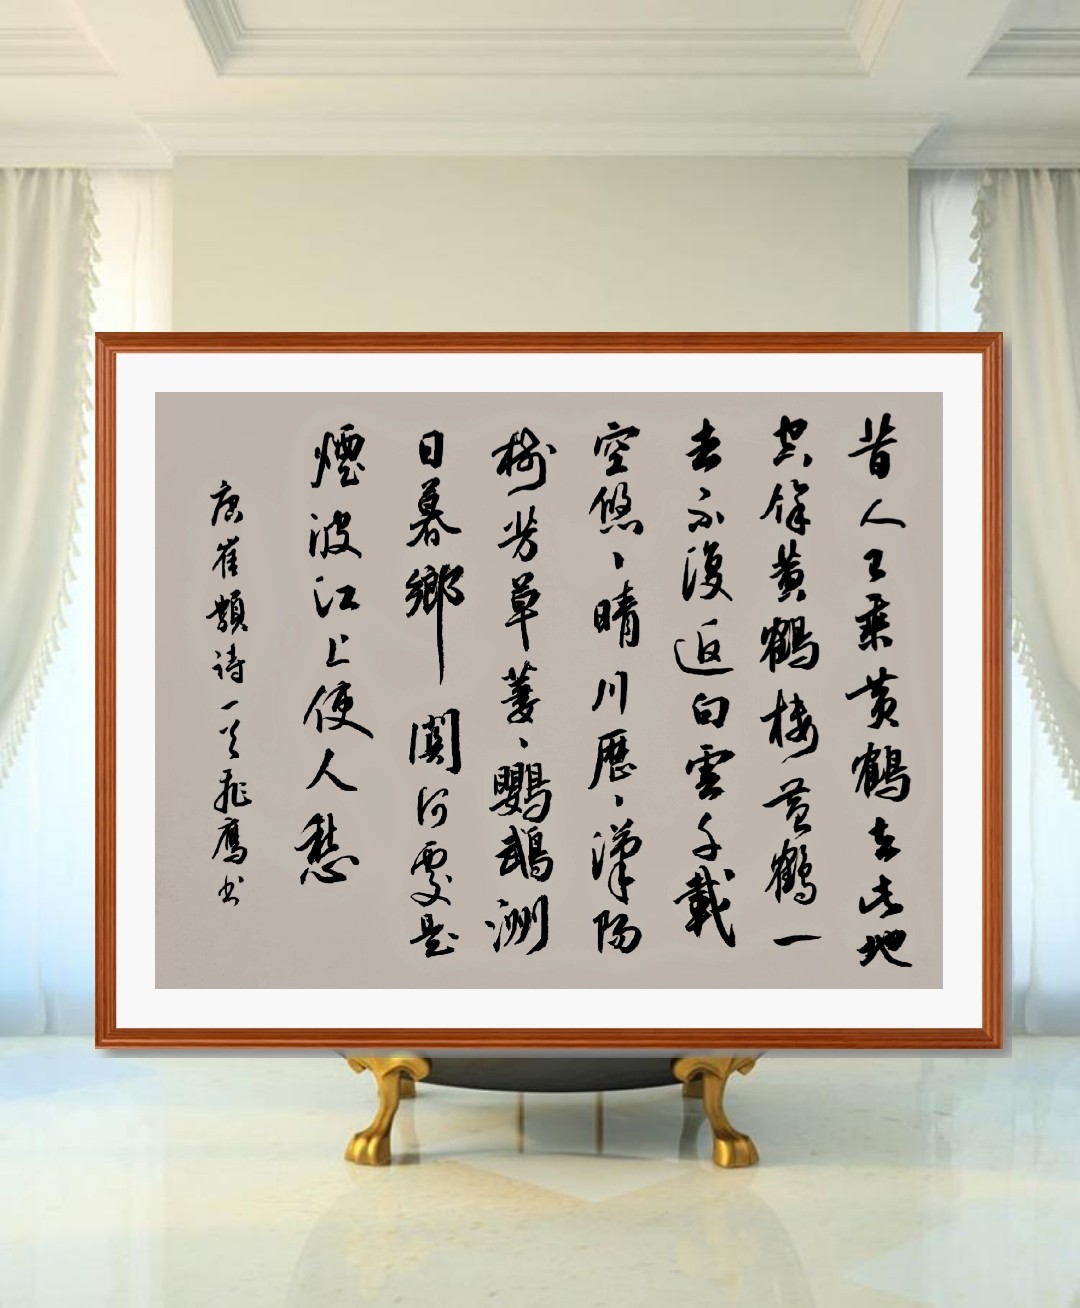 昔人已乘黄鶴去此地
空餘黄鶴楼黄鶴一
去不復返白雲千載
空悠、晴川歷、漢陽
樹芳草萋、鸚鵡洲
日暮鄉關何處是
煙波江上使人愁
唐崔顥诗一首飛鷹书